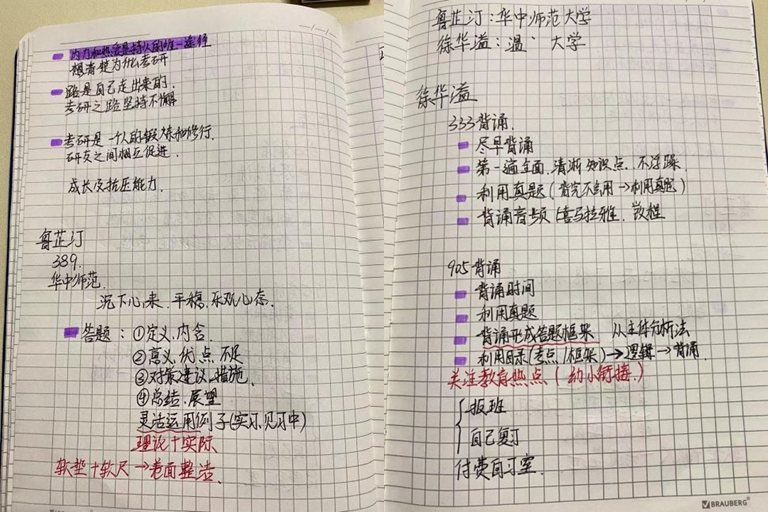 努力和热爱是持久的唯一途径
想清楚为什么考研
路是自己走出来的.
考研之路坚持不懈
考研是一个人的锻炼和修行.
研友之间相互促进.
成长及抗压能力.
鲁芷汀
389.
华中师范.
沉下心来.平稳.乐观心态.
答题：①定义.内容.
②意义.优点.不足
③对策建议.措施.
④总结.展望
灵活运用例子(实习.见习中)
理论+实际
软垫+软尺→卷面整洁.
鲁芷汀：华中师范大学
徐华溢：温 大学
徐华溢
333背诵.
尽早背诵
第一遍全面.清晰知识点.不浮躁.
利用真题(背完不会用→利用真题)
背诵音频(喜马拉雅.
905背诵
背诵时间
利用真题
背诵形成答题框架 从主体分析法
利用目录(考点/框架)→逻辑→背诵.
关注教育热点(幼小衔接.)
报班
自己复习
付费自习室.
BRAUBERG